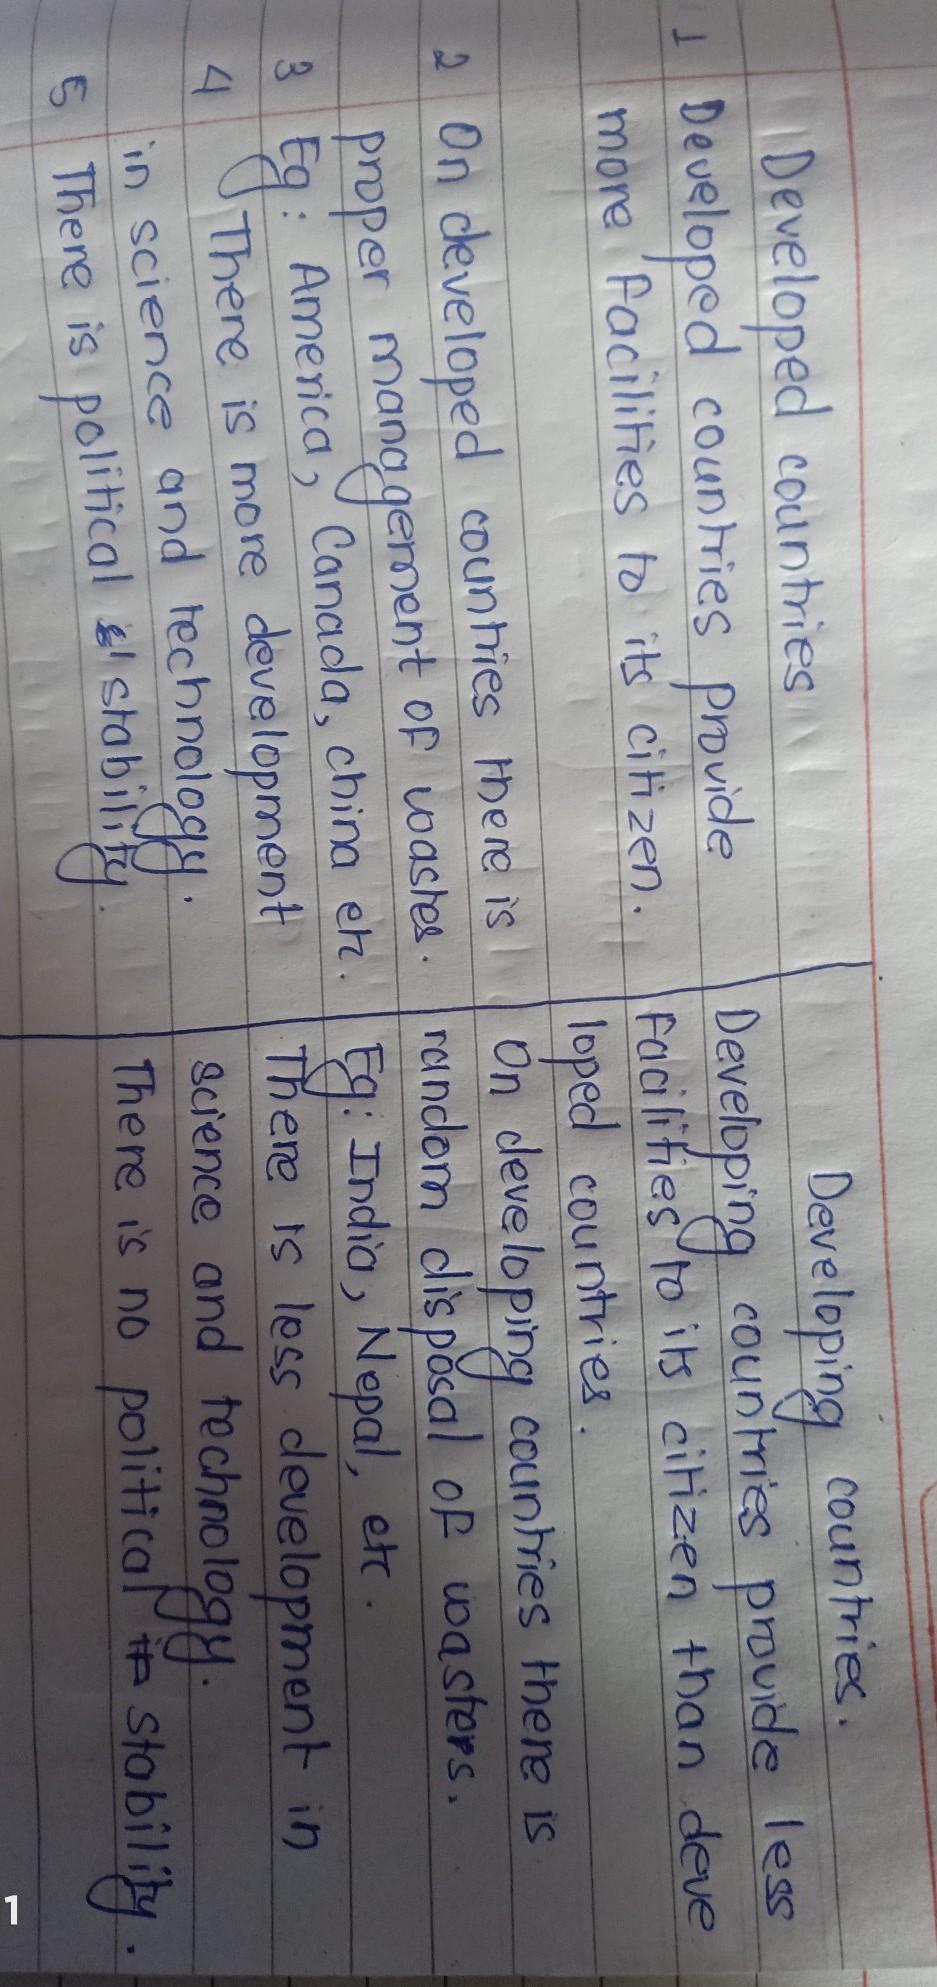 Developed countries
Developing countries.
1 Developed countries provide
more facilities to its citizen.
Developing countries provide less
facilities to its citizen than deve
loped countries.
2 On developed countries there is
proper management of wastes.
On developing countries there is
random disposal of wasters.
3 Eg: America, Canada, china etc.
Eg: India, Nepal, etc.
4 There is more development
in science and technology.
There is less development in
science and technology.
5 There is political stability.
There is no political stability.
1